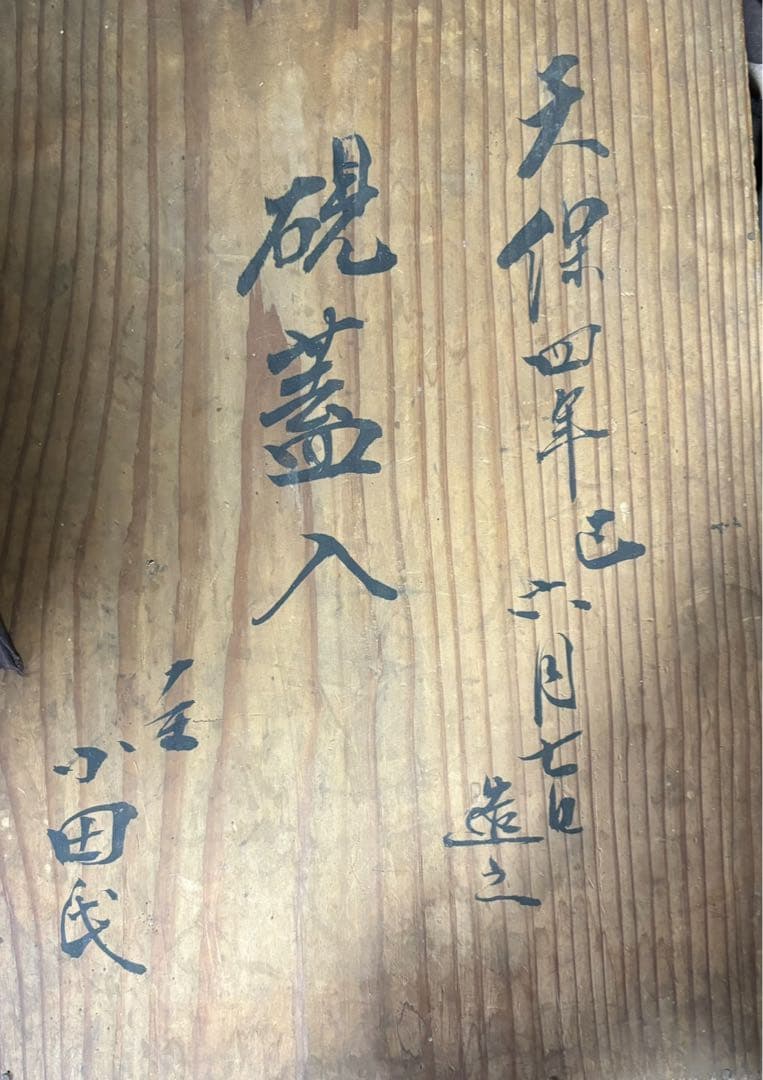 天保四年巳六月七日
造之
硯蓋入
主
小田氏